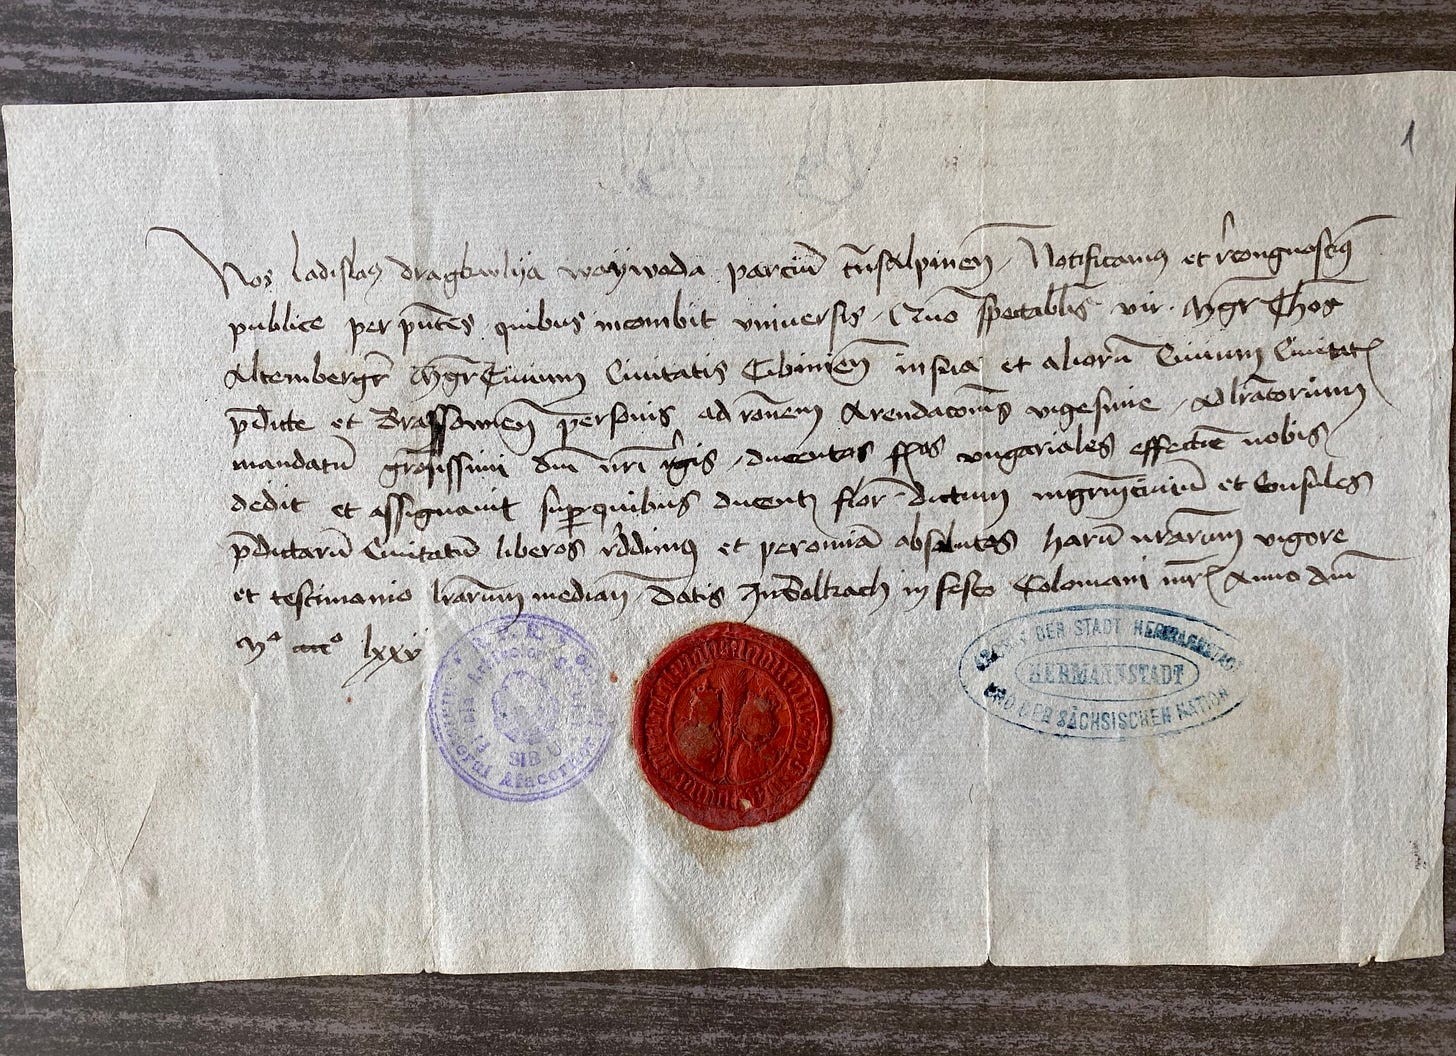 1
Nos ladislaus dragkwlya waywoda parciũ trnsalpinen̄ Notificamus et recongnoscimus
publice per pn̄tes quibus incombit vniversis Quō spectabl̄is vir mgr̄ Thos
Altembergr̄ mgr̄civium Civitatis Cibinien̄ in sua et aliorū Civium Civitat̄
pd̄icte et Brassowien̄ personis ad rōnem Arendacōnis vigesime Ad lr̄atorium
mandatū grōsissimi dn̄i nr̄i rgis ducentos flos vngariales effectiē nobis
dedit et assignauit supquibus ducent̄ flor dictum mgrm̄civiū et Consules
pd̄ictarū Civitatū liberos reddimus et per om̄ia absolutos harū nr̄arum vigore
et testimonio lr̄arum median̄ Datis In Balkach in festo Colomani mr̄ Anno dn̄i
Mº ccccº lxxv
SIBIU
ARCHIV DER STADT HERMANNSTADT
HERMANNSTADT
UND DER SÄCHSISCHEN NATION